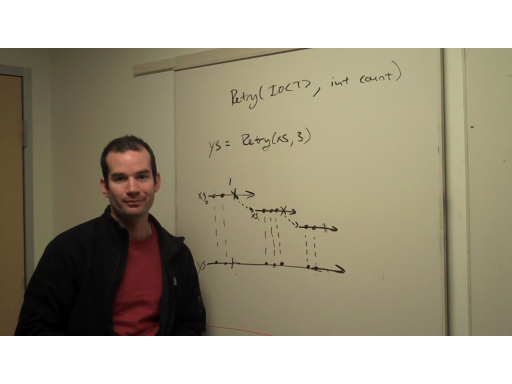 Retry(IO<T>, int count)
ys = Retry(xs, 3)
1
xs
xs
xs
ys